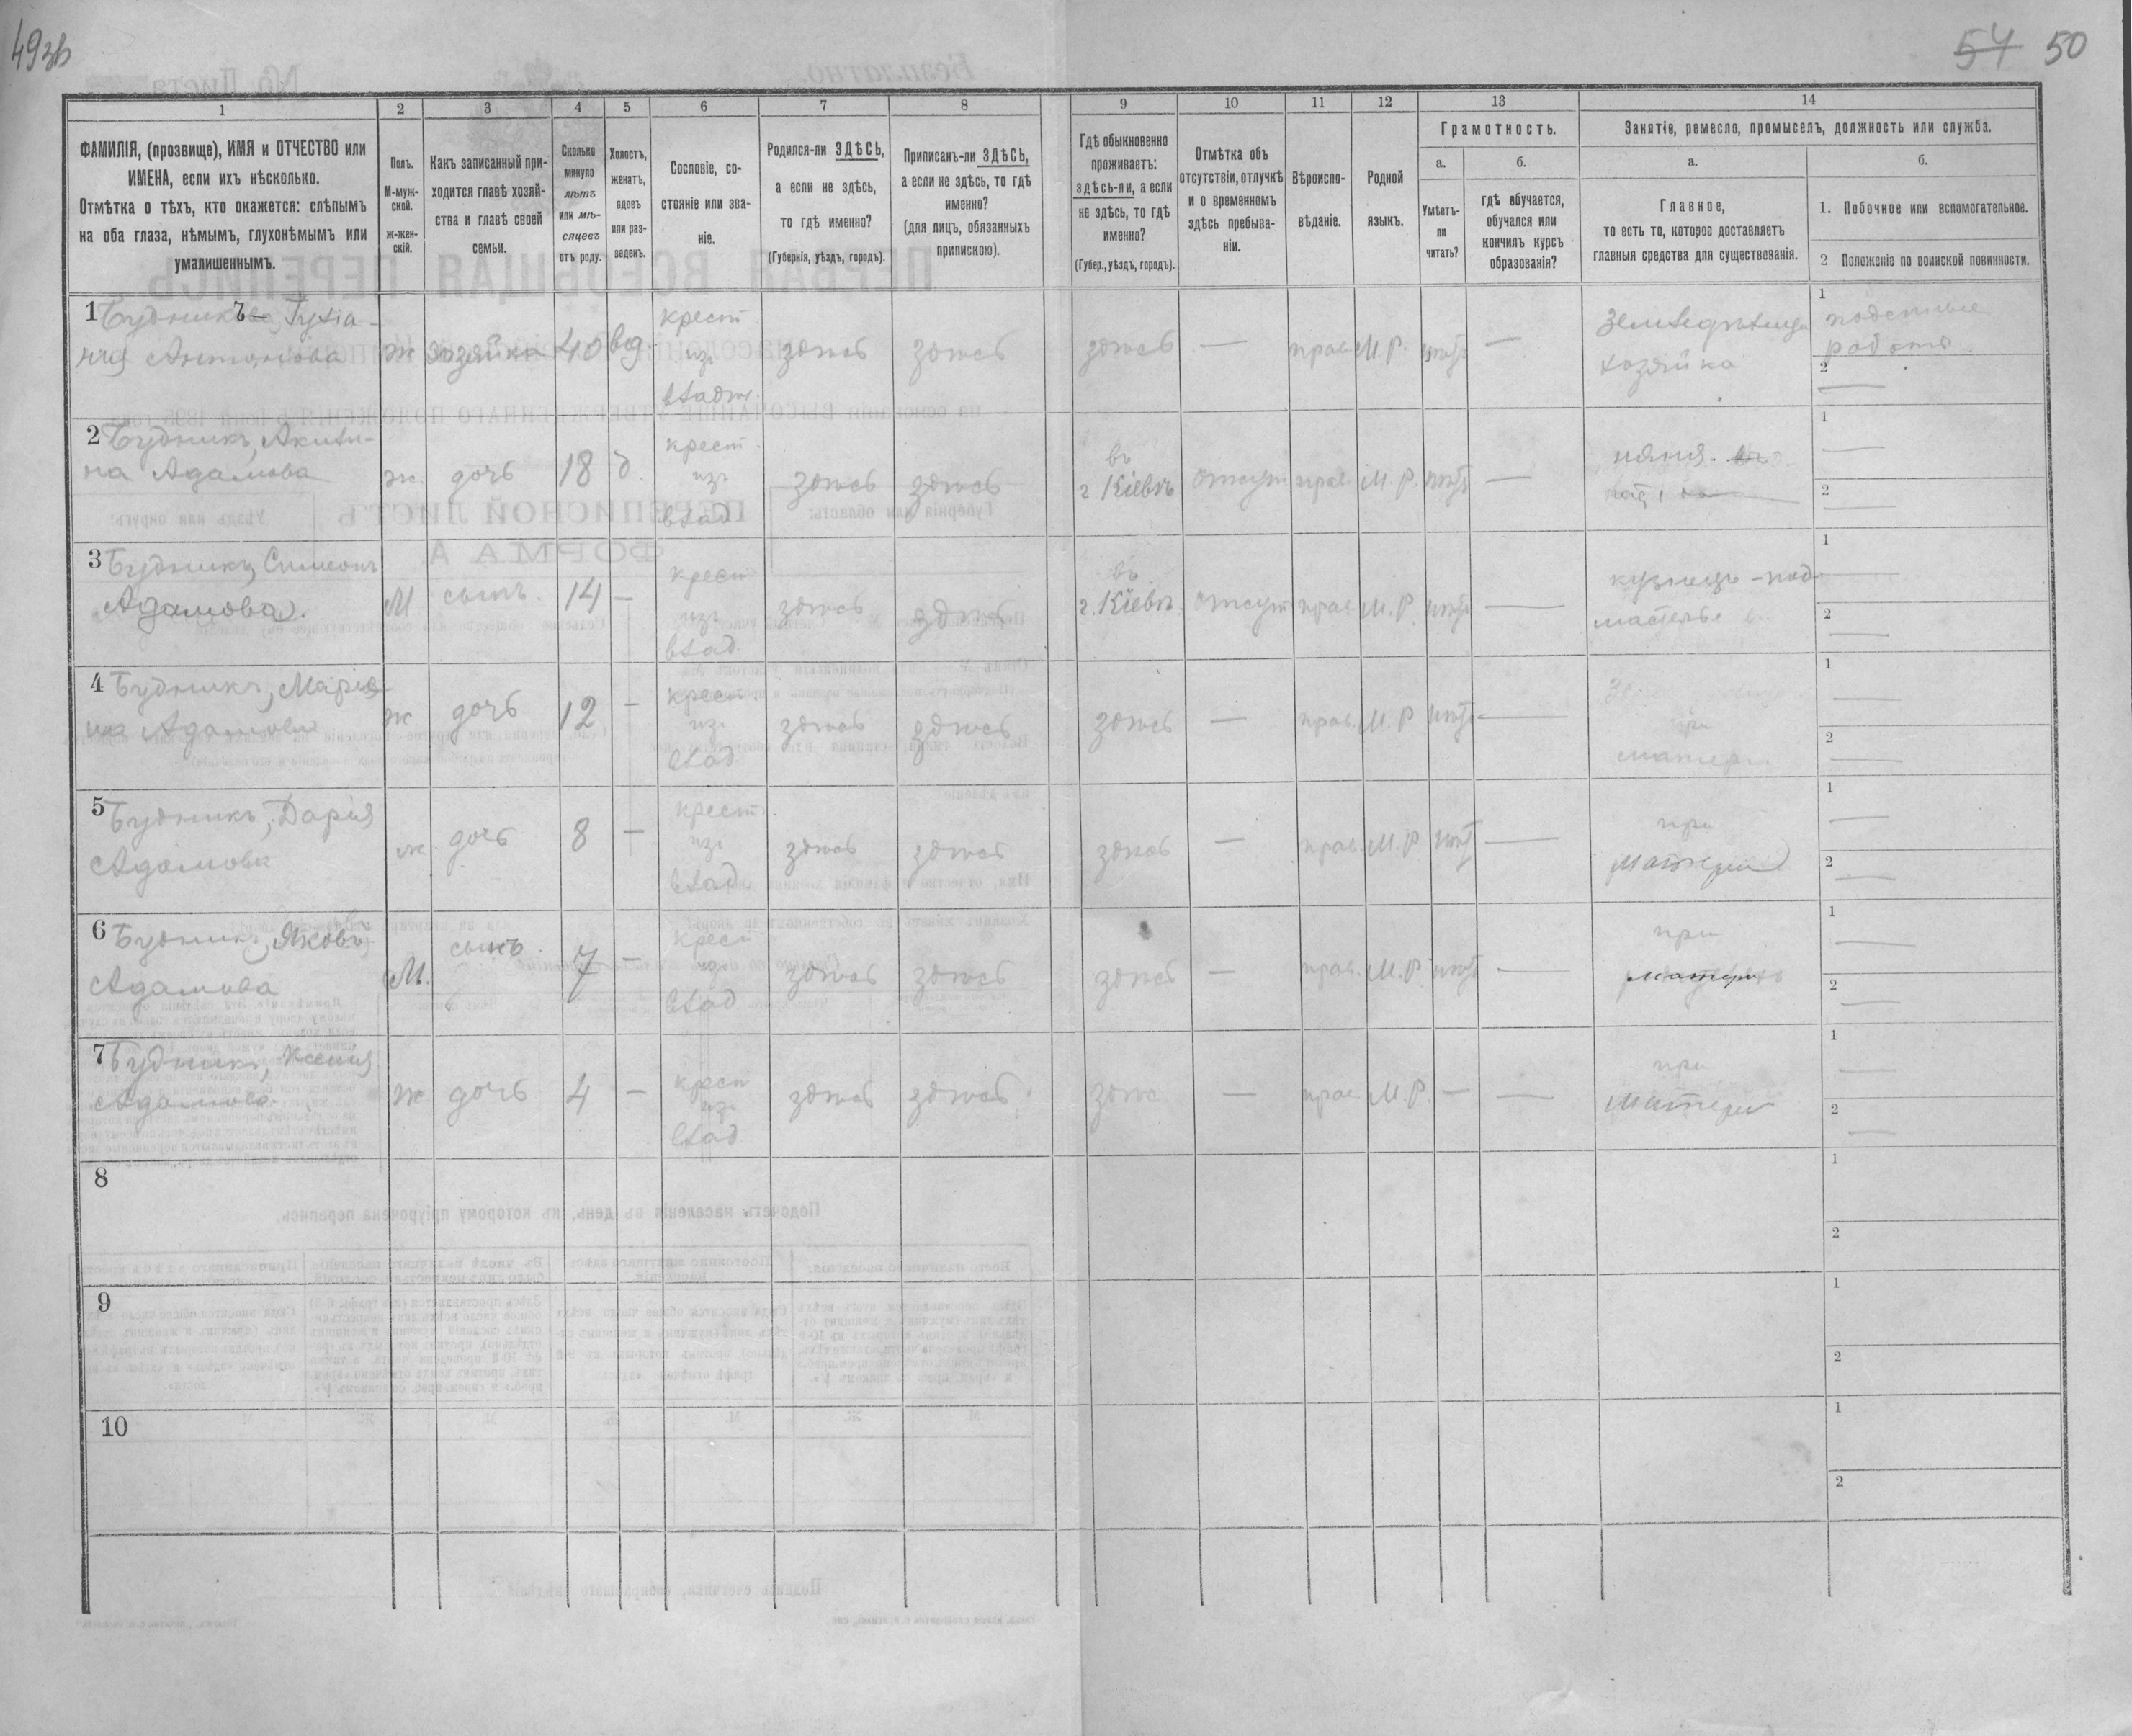 49зв
54 50
1
2
3
4
5
6
7
8
9
10
11
12
13
14
ФАМИЛІЯ, (прозвище), ИМЯ и ОТЧЕСТВО или
ИМЕНА, если ихъ нѣсколько.
Отмѣтка о тѣхъ, кто окажется: слѣпымъ
на оба глаза, нѣмымъ, глухонѣмымъ или
умалишеннымъ.
Полъ.
М-муж-
ской.
ж-жен-
скій.
Какъ записанный при-
ходится главѣ хозяй-
ства и главѣ своей
семьи.
Сколько
минуло
лѣтъ
или мѣ-
сяцевъ
отъ роду.
Холостъ,
женатъ,
вдовъ
или раз-
веденъ.
Сословіе, со-
стояніе или зва-
ніе.
Родился-ли ЗДѢСЬ,
а если не здѣсь,
то гдѣ именно?
(Губернія, уѣздъ, городъ).
Приписанъ-ли ЗДѢСЬ,
а если не здѣсь, то гдѣ
именно?
(для лицъ, обязанныхъ
припискою).
Гдѣ обыкновенно
проживаетъ:
здѣсь-ли, а если
не здѣсь, то гдѣ
именно?
(Губер., уѣздъ, городъ).
Отмѣтка объ
отсутствіи, отлучкѣ
и о временномъ
здѣсь пребыва-
ніи.
Вѣроиспо-
вѣданіе.
Родной
языкъ.
Грамотность.
а.
Умѣетъ-
ли
читать?
б.
гдѣ обучается,
обучался или
кончилъ курсъ
образованія?
Занятіе, ремесло, промыселъ, должность или служба.
а.
Главное,
то есть то, которое доставляетъ
главныя средства для существованія.
б.
1. Побочное или вспомогательное.
2 Положеніе по воинской повинности.
1 Будникъ,
Антонова
ж хозяйка 40 вд.
крест.
изъ
владѣл.
здѣсь здѣсь здѣсь — прав. М.Р. нѣтъ —
хозяйка
1 поденные
работы
2 —
2 Будникъ, Акили-
на Адамова
ж. дочь 18 д.
крест.
изъ
влад.
здѣсь здѣсь
въ
г. Кіевѣ отсут. прав. М.Р. нѣтъ —
няня.
1 —
2 —
3 Будникъ, Симеонъ
Адамовъ.
М сынъ. 14 —
крест
изъ
влад.
здѣсь здѣсь
въ
г. Кіевѣ. отсут прав. М.Р. нѣтъ —
кузнецъ - под-
мастерье
1 —
2 —
4 Будникъ, Марья-
на Адамова
ж. дочь 12 —
крест.
изъ
влад.
здѣсь здѣсь здѣсь — прав. М.Р нѣтъ —
при
матери
1 —
2 —
5 Будникъ, Дарія
Адамова
ж дочь 8 —
крест.
изъ
влад.
здѣсь здѣсь здѣсь — прав. М.Р нѣтъ —
при
матери
1 —
2 —
6 Будникъ, Яковъ
Адамова
М. сынъ. 7 —
крест
изъ
влад
здѣсь здѣсь здѣсь — прав. М.Р. нѣтъ —
при
матери
1 —
2 —
7 Будникъ, Ксенія
Адамова
ж дочь 4 —
крест
изъ
влад
здѣсь здѣсь. здѣс — прав. М.Р. — —
при
матери
1 —
2 —
8
1
2
9
1
2
10
1
2